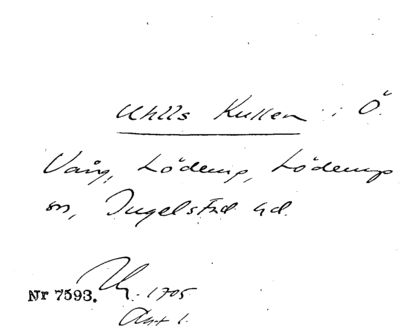 Uhlls Kullen i Ö.
Vång, Löderup, Löderups
sn, Ingelstad hd.
Nr 7593. 1705
Akt 1.